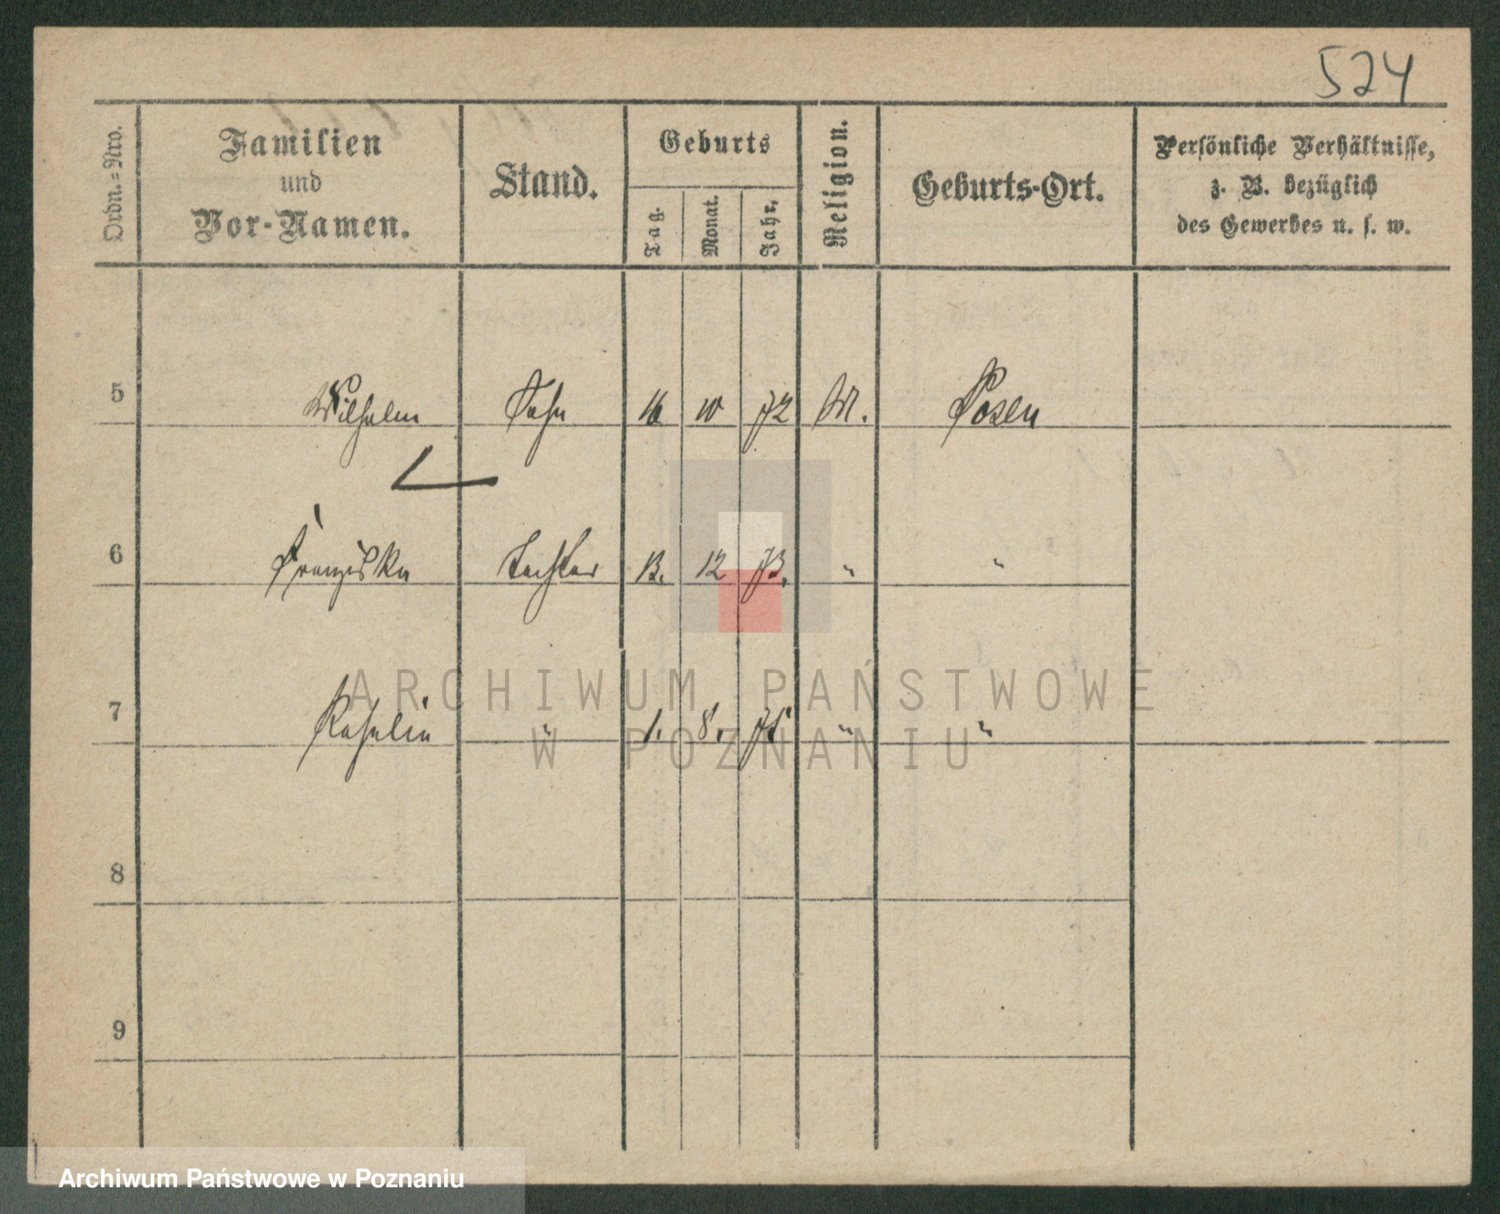 524
Ordn.=Nro.
Familien
und
Vor-Namen.
Stand.
Geburts
Tag.
Monat.
Jahr.
Religion.
Geburts-Ort.
Persönliche Verhältnisse,
z. B. bezüglich
des Gewerbes u. s. w.
5 Wilhelm Sohn 16 10 72 M. Posen
6 Franziska Tochter 13. 12 73. " "
7 Rosalie " 1. 8. 75 " "
8
9
ARCHIWUM PAŃSTWOWE
W POZNANIU
Archiwum Państwowe w Poznaniu